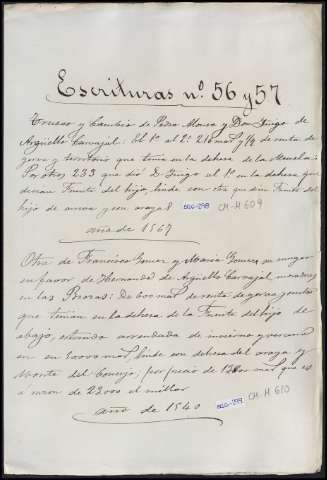 Escrituras nº. 56 y 57
Trueno y Cambio de Pedro Alonso y Don Iñigo de
Argüello Carvajal: El 1º al 2º 218 mrs y 1/4 de renta de
yerva y territorio que tenia en la dehesa de la
Por otros 233 que dió D. Iñigo al 1º en la dehesa que
dicen Fuente del hijo, linde con otra que dicen Fuente del
hijo de arriba y con araya
CM-H 609
año de 1567
Otra de Francisco Gomez y Maria Gomez su muger
en favor de Hernando de Argüello Carvajal
en las Brozas: De 600 mrs de renta de yerva y
que tenian en la dehesa de la Fuente del hijo de
abajo, estando arrendada de invierno y verano
en mrs, linde con dehesa del araya y
Monte del Concejo; por precio de mrs, que es
á razon de 22000 el millar
CM-H 610
año de 1540